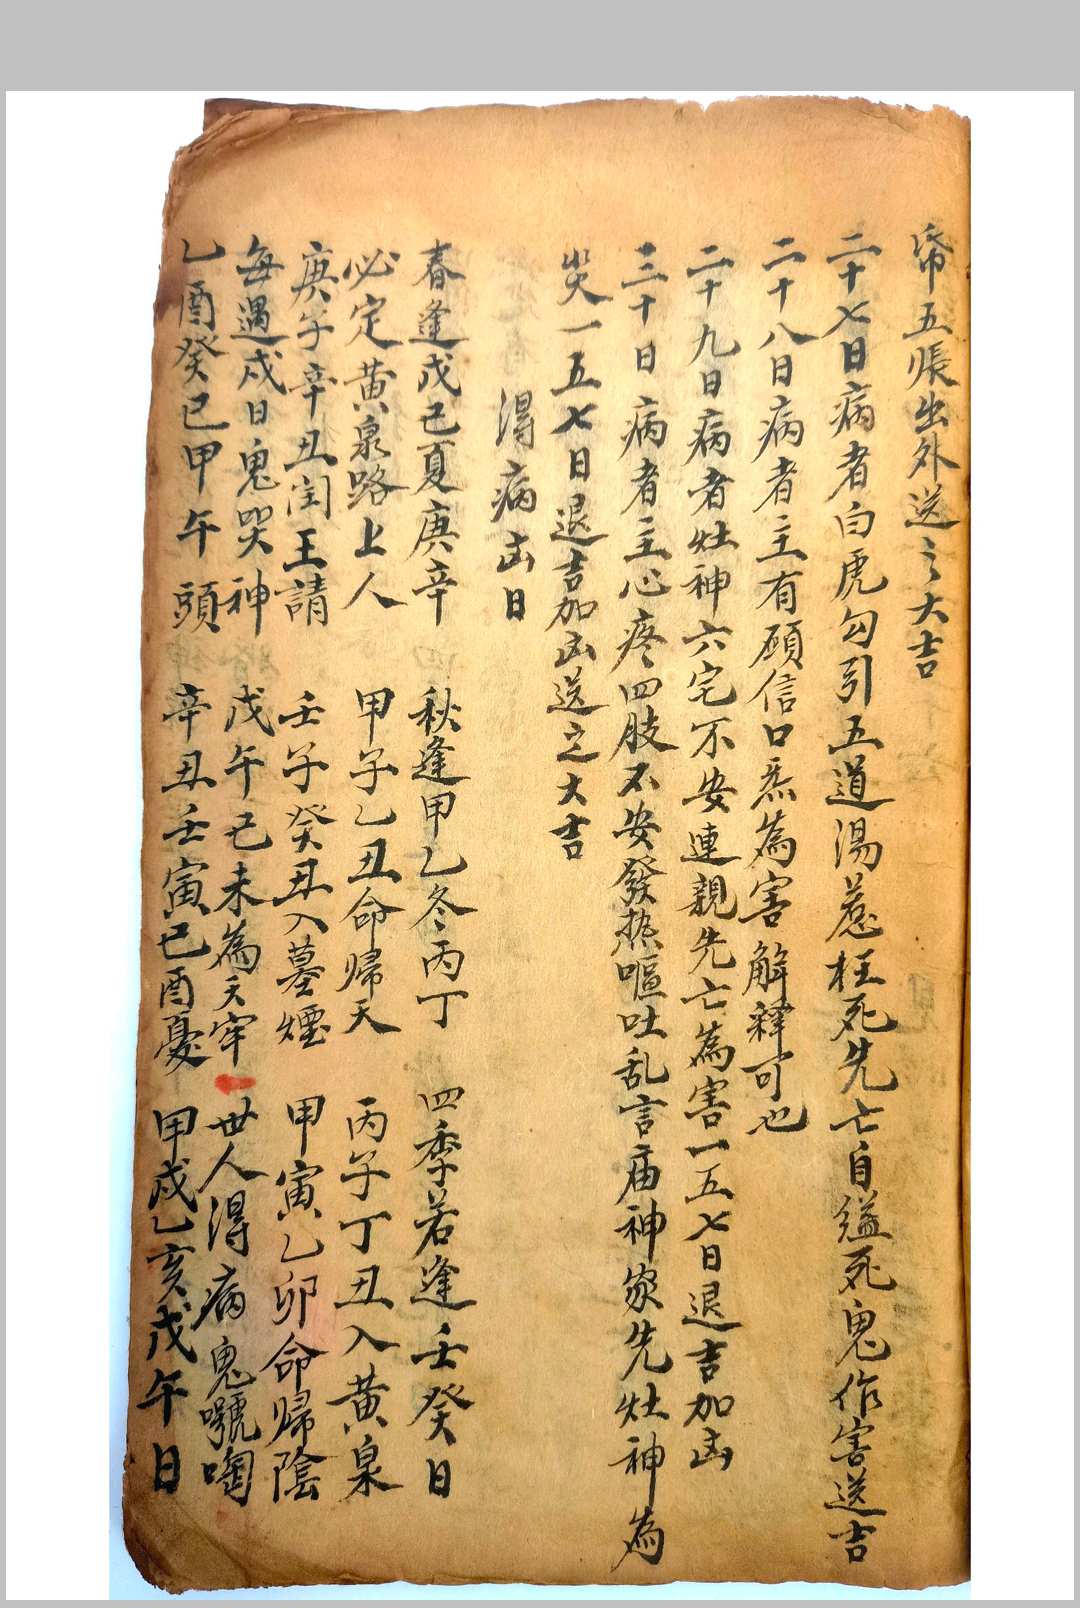 帋五張出外送之大吉
二十七日病者白虎勾引五道湯惹枉死先亡自縊死鬼作害送吉
二十八日病者主有願信口炁為害解釋可也
二十九日病者灶神六宅不安連親先亡為害一五七日退吉加凶
三十日病者主心疼四肢不安發熱嘔吐乱言庙神家先灶神為
災一五七日退吉加凶送之大吉
得病凶日
春逢戊己夏庚辛 秋逢甲乙冬丙丁 四季若逢壬癸日
必定黄泉路上人 甲子乙丑命歸天 丙子丁丑入黄泉
庚子辛丑閆王請 壬子癸丑入墓煙 甲寅乙卯命歸陰
每遇戍日鬼哭神 戊午己未為天牢 世人得病鬼號啕
乙酉癸巳甲午頭 辛丑壬寅己酉憂 甲戍乙亥戊午日